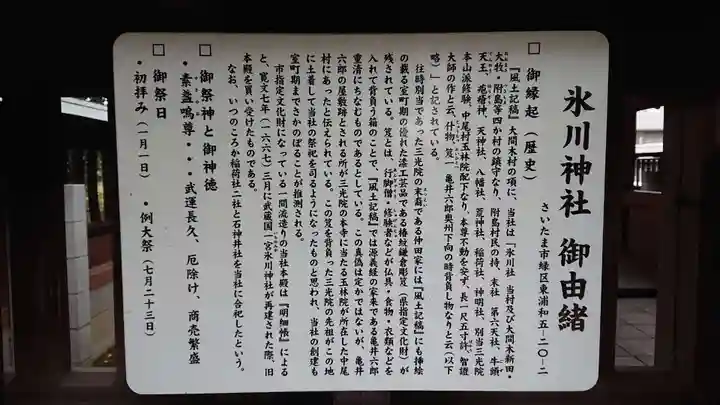 氷川神社 御由緒
さいたま市緑区東浦和五-二〇-二
□ 御縁起（歴史）
『風土記稿』大間木村の項に、当社は「氷川社 当村及び大間木新田・
大牧・附島等四か村の鎮守なり、附島村民の持、末社 第六天社、牛頭
天王、疱瘡神、天神社、八幡社、荒神社、稲荷社、神明社、別当三光院
本山派修験、中尾村玉林院配下なり、本尊不動を安ず、長一尺五寸許、智證
大師の作と云、什物、笈一 亀井六郎奥州下向の時背負し物なりと云（以下
略）」と記されている。
往時別当であった三光院の末裔である仲田家には『風土記稿』にも挿絵
の載る室町期の優れた漆工芸品である椿紋鎌倉彫笈（県指定文化財）が
残されている。笈とは、行脚僧・修験者などが仏具・食物・衣類などを
入れて背負う箱のことで、『風土記稿』では源義経の家来である亀井六郎
重清にちなむものであるとしている。この真偽は定かではないが、亀井
六郎の屋敷跡とされる所が三光院の本寺に当たる玉林院が所在した中尾
村にあったと伝えられている。この笈を背負った三光院の先祖がこの地
に土着して当社の祭祀を司るようになったものと思われ、当社の創建も
室町期までさかのぼることが推測される。
市指定文化財になっている一間流造りの当社本殿は『明細帳』による
と、寛文七年（一六六七）三月に武蔵国一宮氷川神社が再建された際、旧
本殿を買い受けたものである。
なお、いつのころか稲荷社二社と石神井社を当社に合祀したという。
□ 御祭神と御神徳
・素盞嗚尊・・・武運長久、厄除け、商売繁盛
□ 御祭日
・初拝み（一月一日） ・例大祭（七月二十三日）